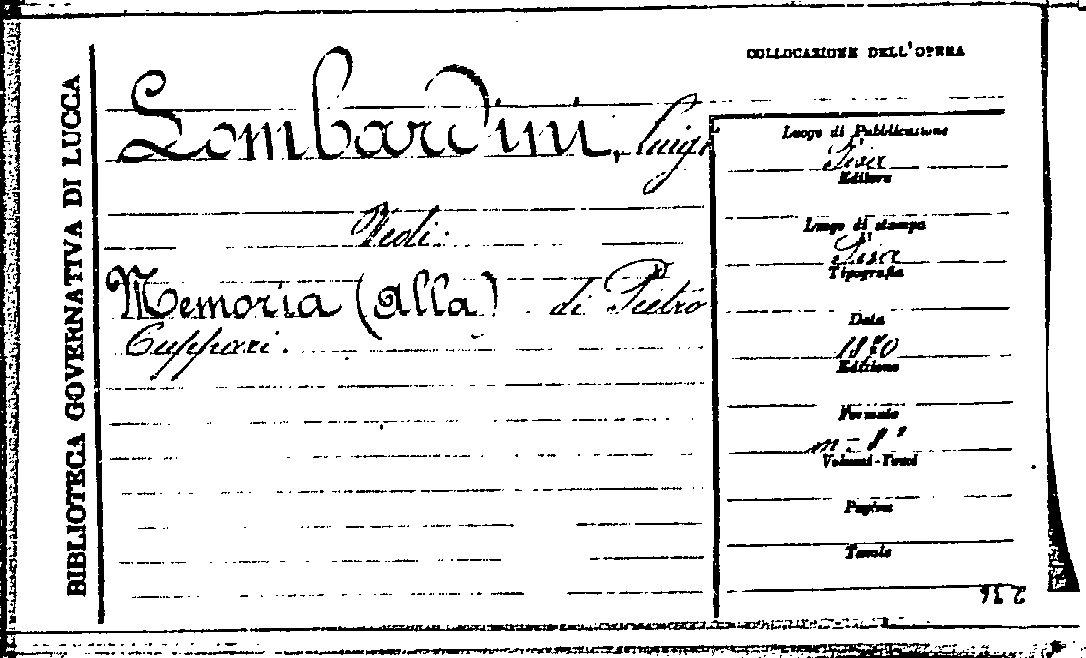 BIBLIOTECA GOVERNATIVA DI LUCCA
COLLOCAZIONE DELL'OPERA
Lombardini, Luigi
Vedi:
Memoria (alla) di Pietro
Cuppari.
Luogo di Pubblicazione
Pisa
Editore
Luogo di stampa
Pisa
Tipografia
Data
1870
Edizione
Formato
in-8°
Volumi-Tomi
Pagine
Tavole